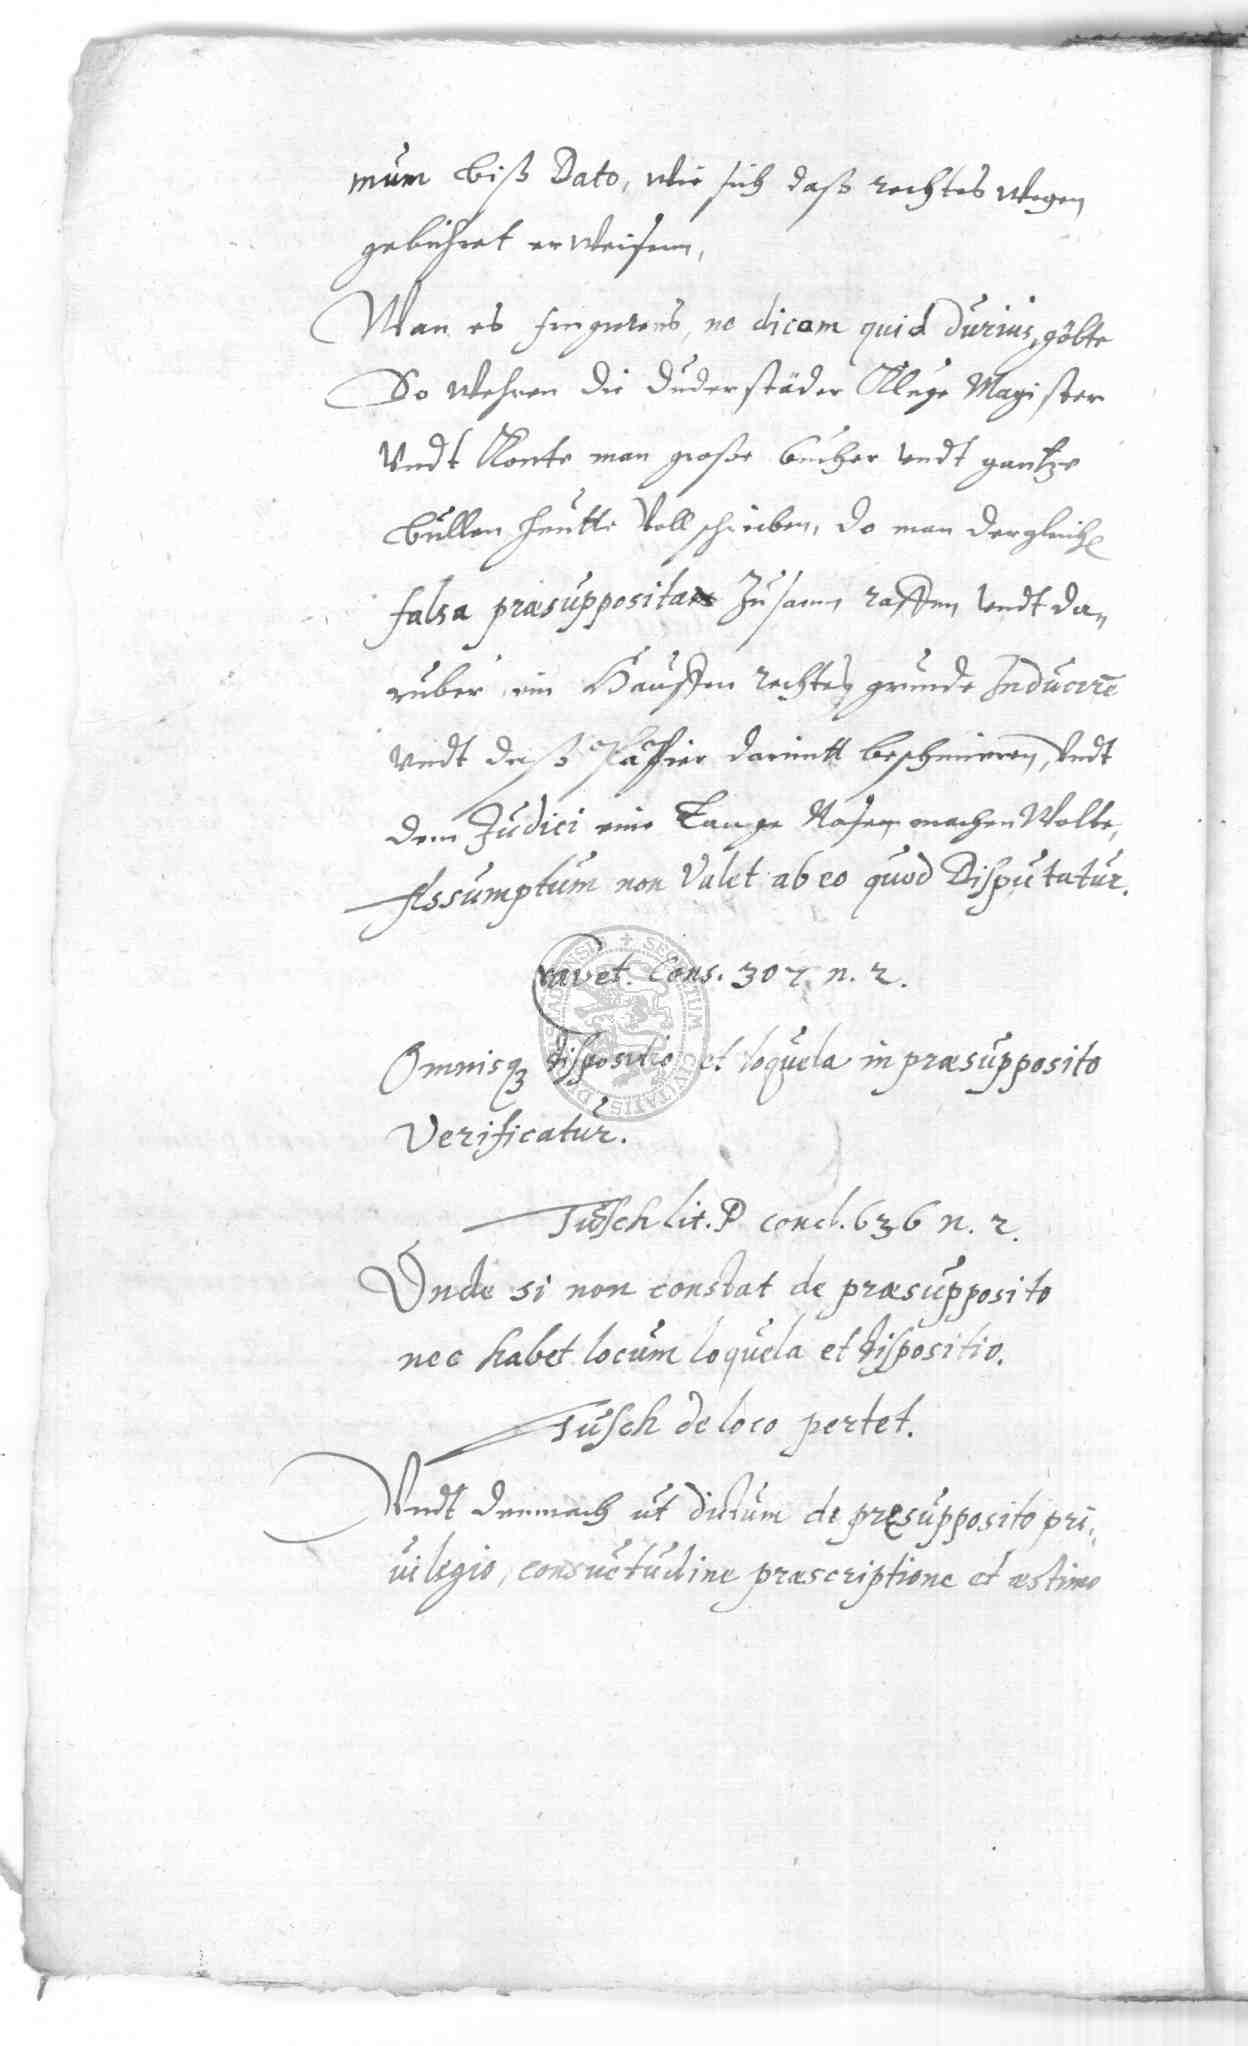 mum biß Dato, wie sich daß rechtes wegen
gebühret erweisen,
Wan es fingirens, ne dicam quid durius, gölte
So wehren die Duderstäder Kluge Magister
Undt Konte man große bücher undt gantze
Bullen heutte Voll schrieben, do man dergleich
falsa præsupposita Zusamm raffen undt da,
ruber ein Hauffen rechtes grunde Inducirē
Undt daß Papier darmitt beschmieren, Undt
dem Judici eine Lange Nasen machen Wolte,
Assumptum non Valet ab eo quod Disputatur.
Cravet. Cons. 307. n. 2.
Omnisq; dispositio et loquela in præsupposito
Verificatur.
Tusch lit. P concl. 636 n. 2.
Unde si non constat de præsupposito
nec habet locum loquela et dispositio.
Tusch de loco pertet.
Undt demnach ut dictum de pręsupposito pri,
uilegio, consuetudine præscriptione et æstimo
SECRETUM CIVITATIS DUDERSTADENSIS